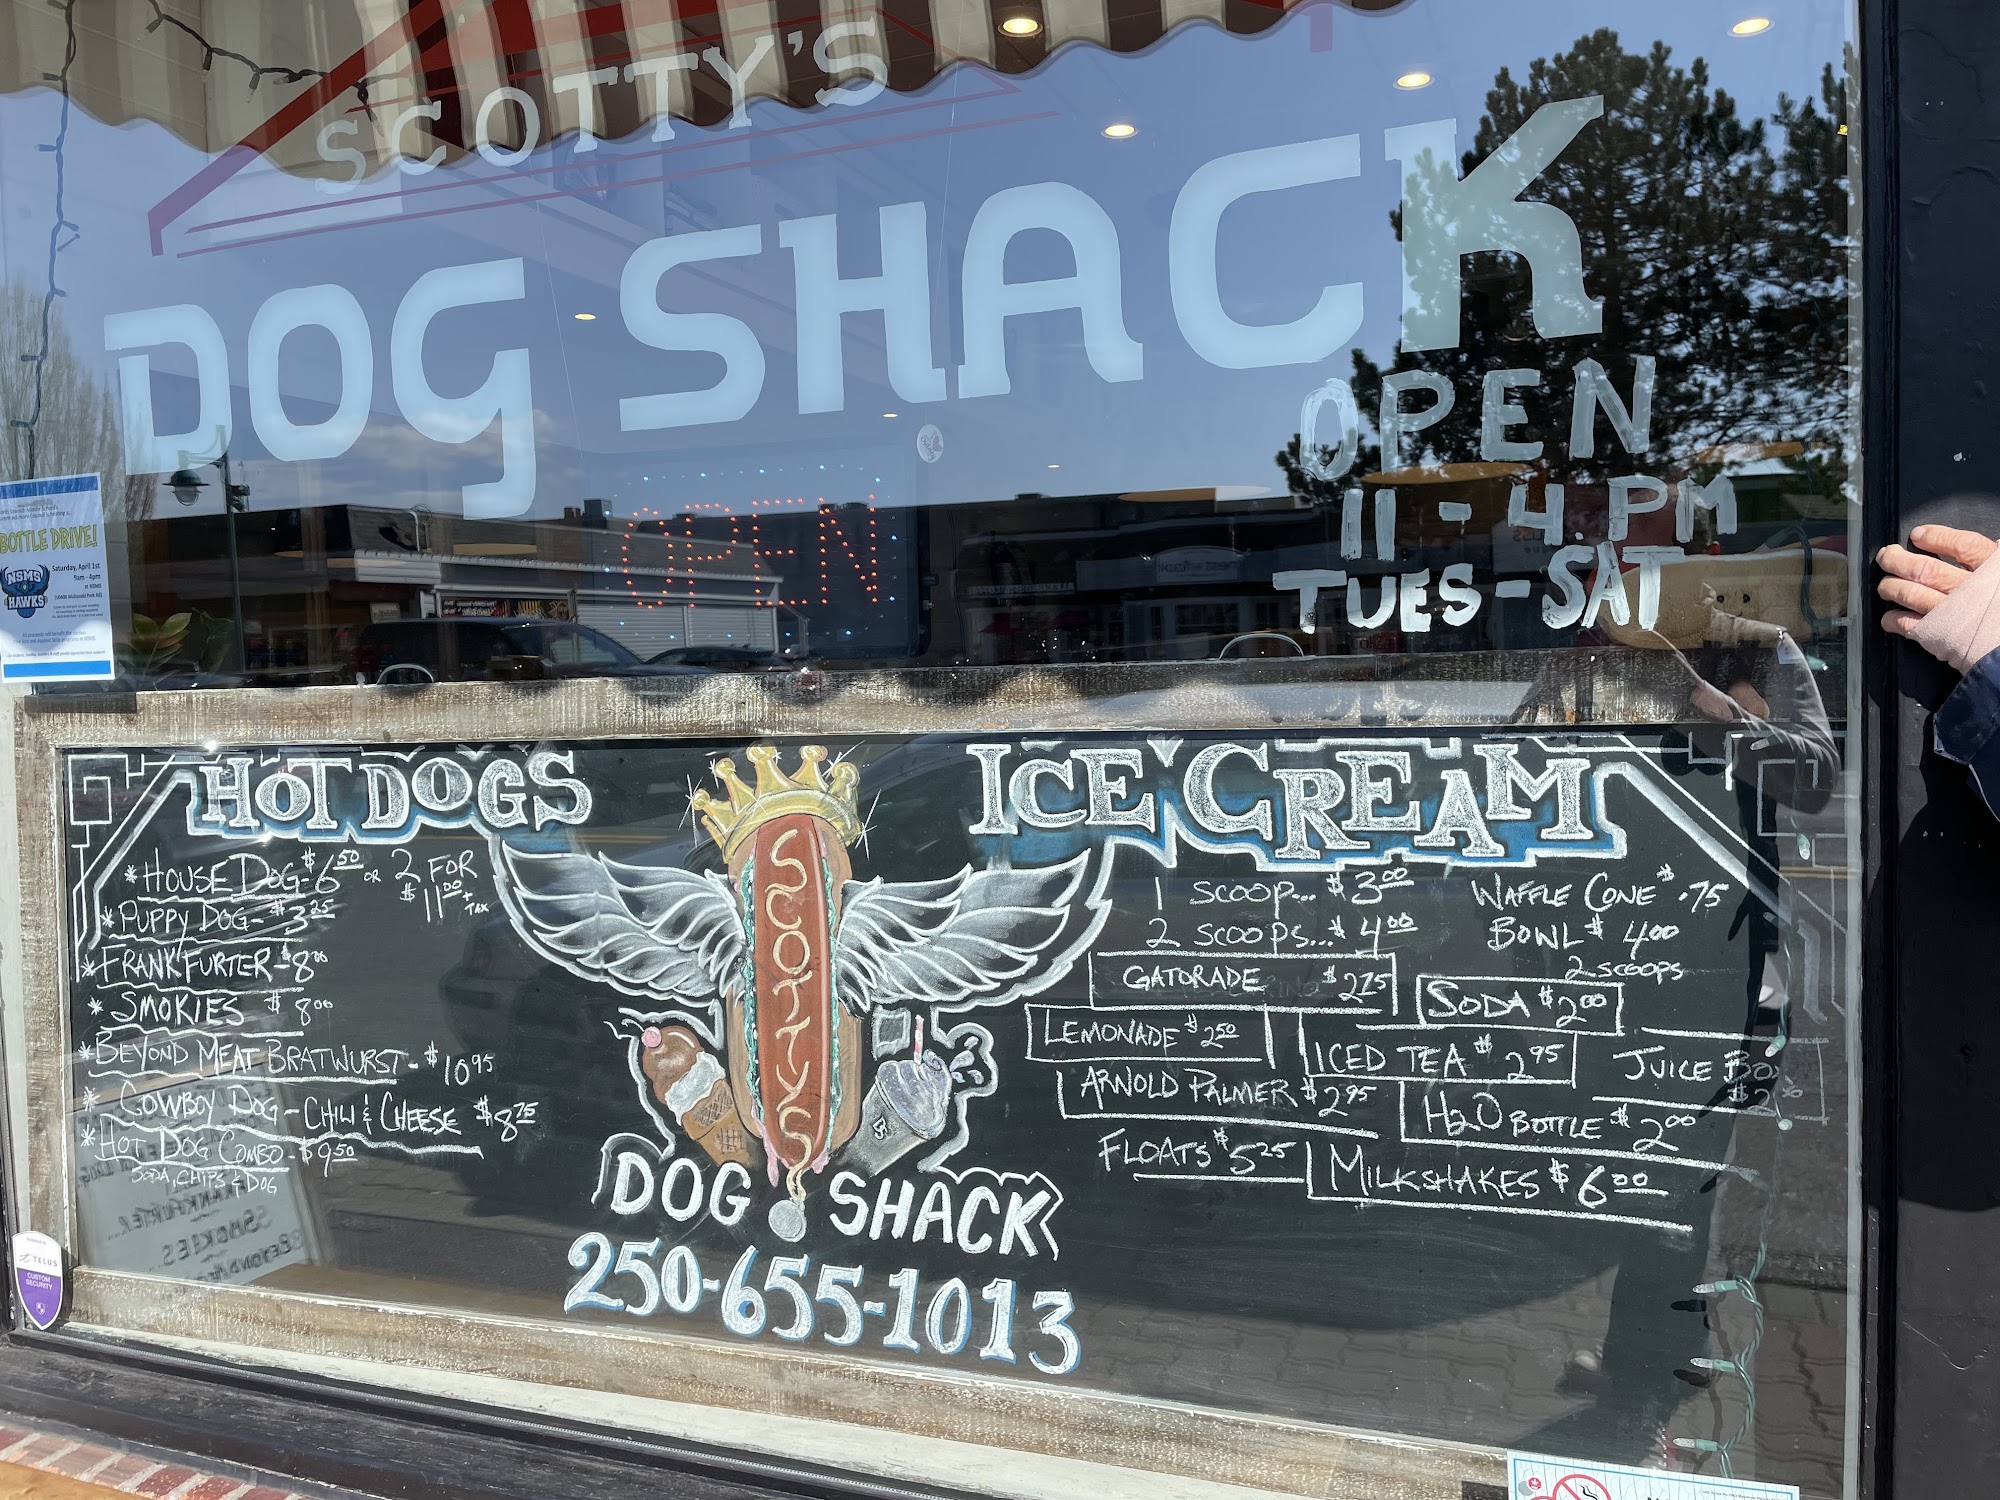 SCOTTY'S
DOG SHACK
OPEN
11 - 4 PM
TUES - SAT
OPEN
BOTTLE DRIVE!
Saturday, April 1st
9am - 4pm
at NSMS
NSMS
HAWKS
HOT DOGS
* HOUSE DOG - $6.50 OR 2 FOR $11.00 + TAX
* PUPPY DOG - $3.25
* FRANKFURTER - $8.00
* SMOKIES $8.00
* BEYOND MEAT BRATWURST - $10.95
* COWBOY DOG - CHILI & CHEESE $8.75
* HOT DOG COMBO - $9.50
SODA, CHIPS & DOG
SCOTTYS
DOG SHACK
250-655-1013
ICE CREAM
1 SCOOP... $3.00
2 SCOOPS... $4.00
WAFFLE CONE $.75
BOWL $4.00
2 SCOOPS
GATORADE $2.75
SODA $2.00
LEMONADE $2.50
ICED TEA $2.95
JUICE
ARNOLD PALMER $2.95
H2O BOTTLE $2.00
FLOATS $5.25
MILKSHAKES $6.00
TELUS
CUSTOM
SECURITY